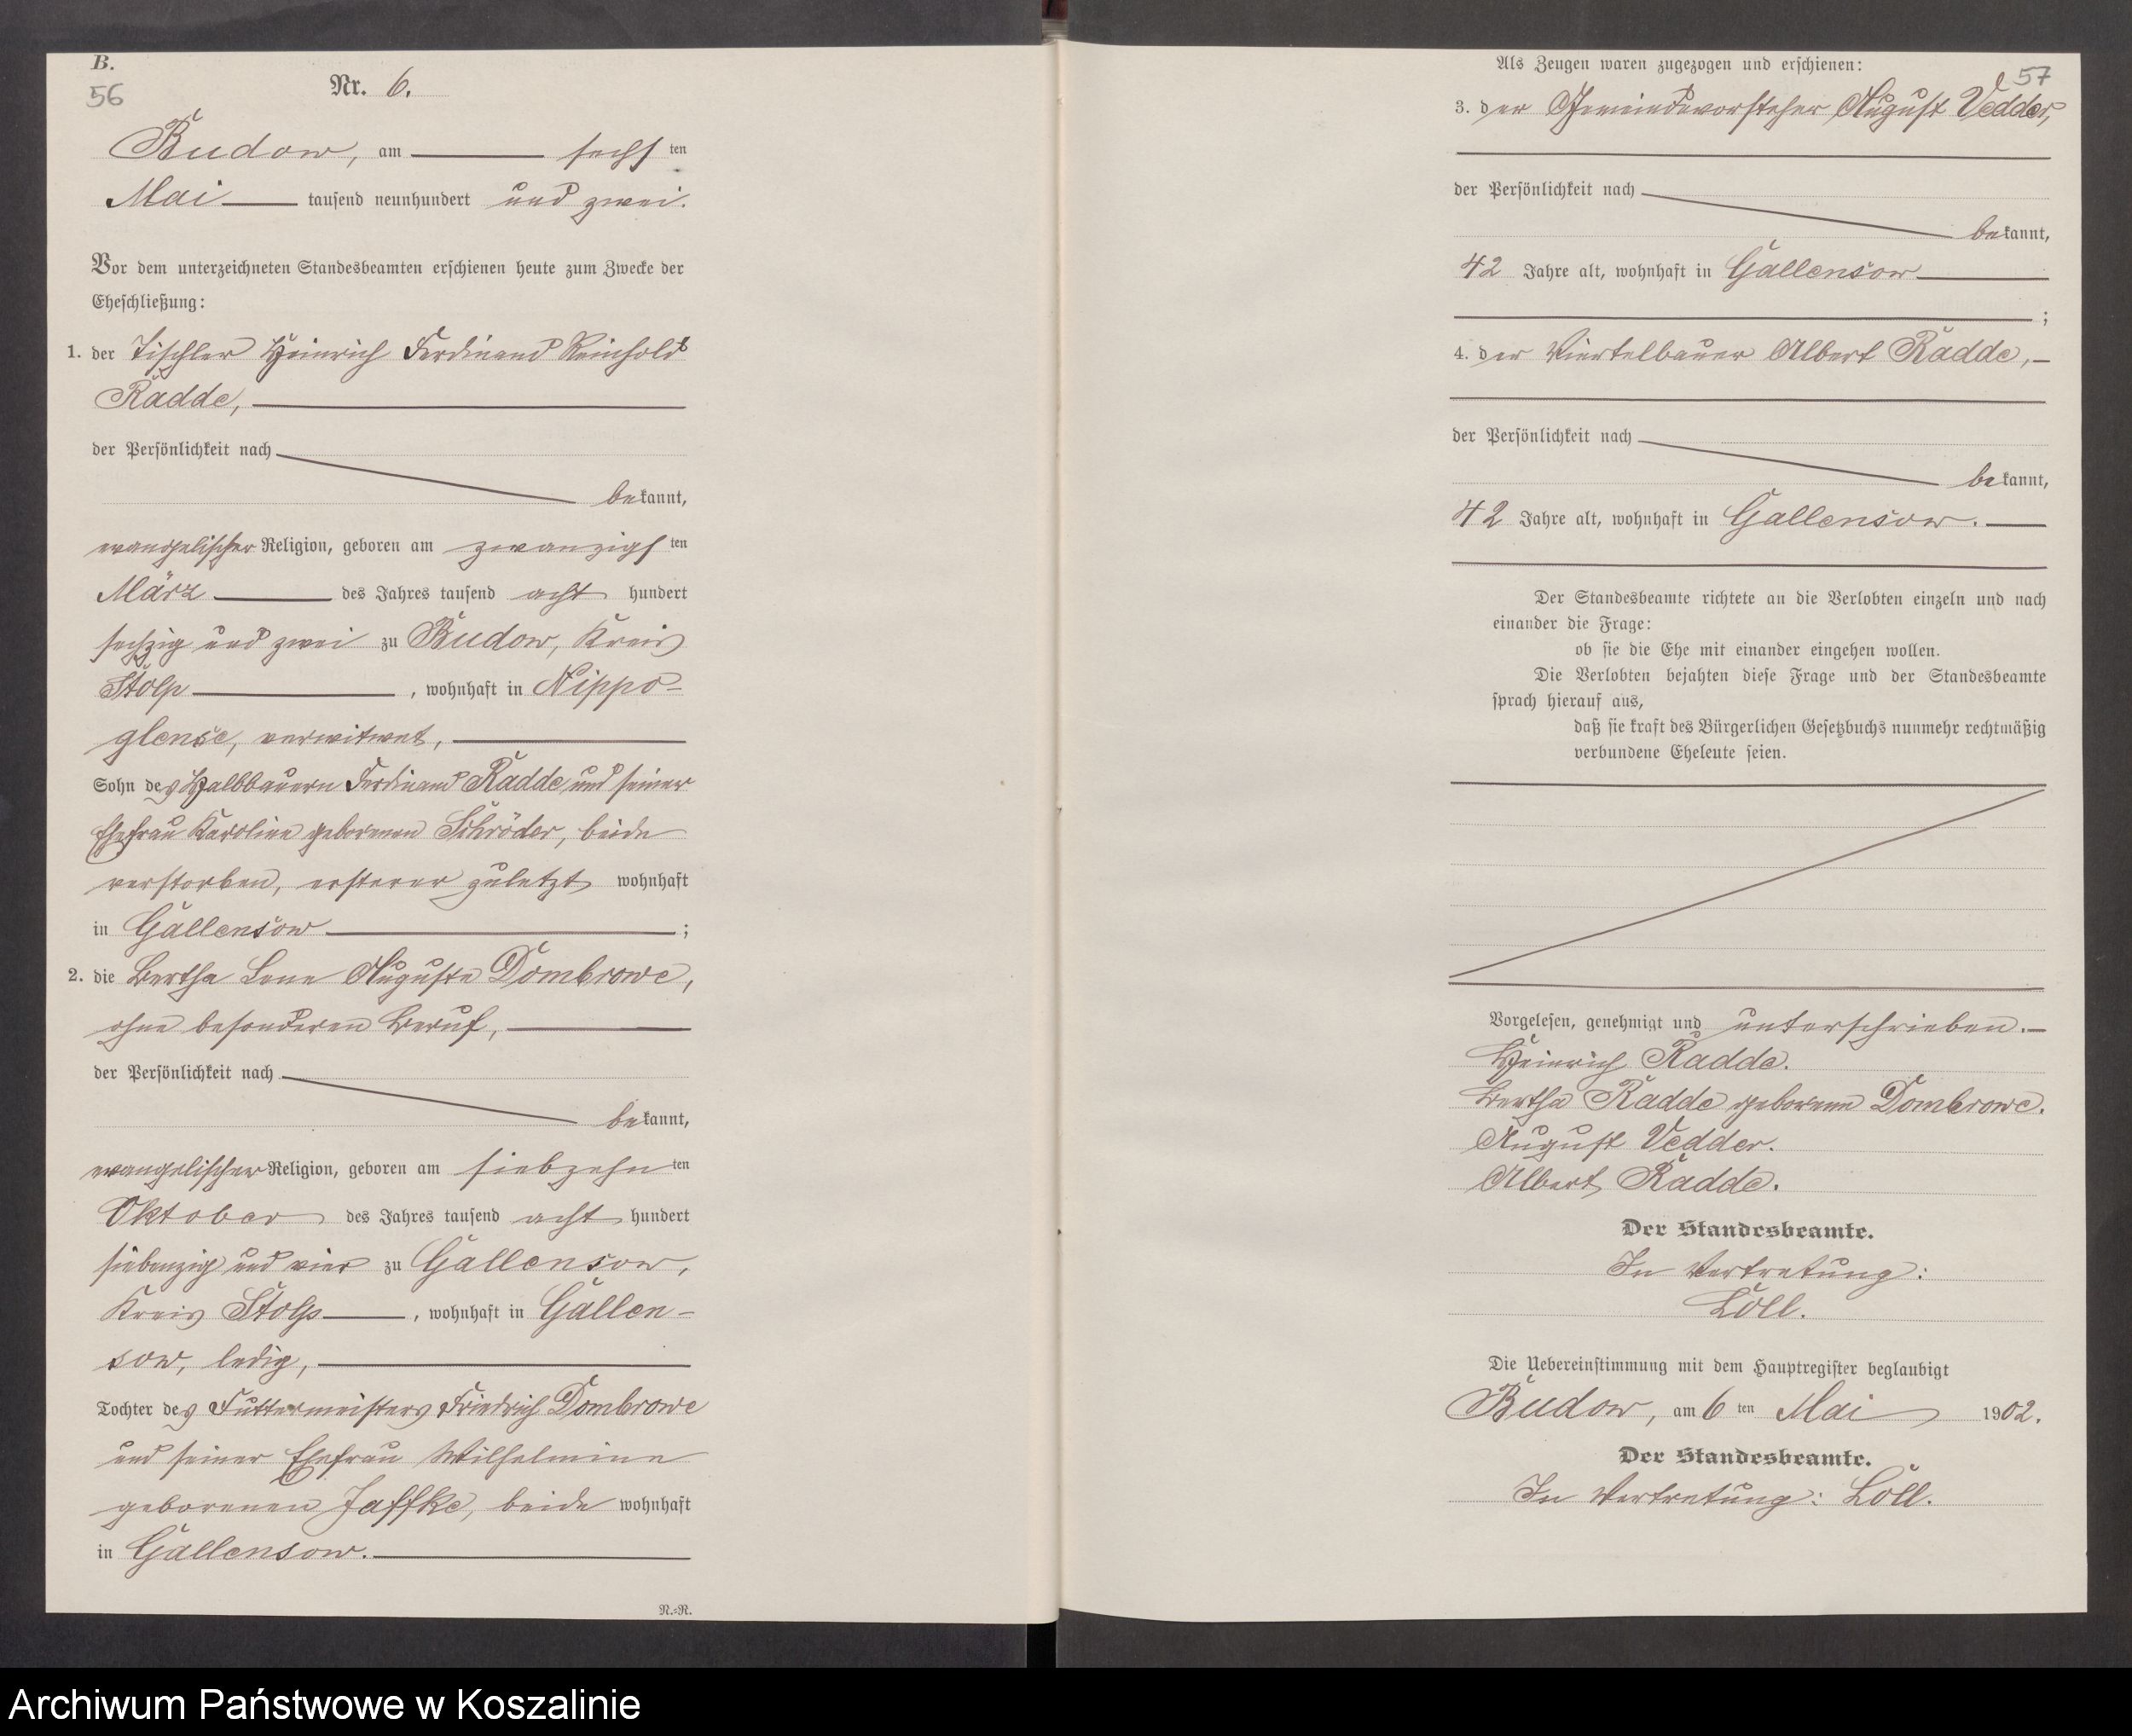 B.
56
Nr. 6.
Budow, am sechsten
Mai tausend neunhundert und zwei.
Vor dem unterzeichneten Standesbeamten erschienen heute zum Zwecke der
Eheschließung:
1. der Tischler Heinrich Ferdinand Reinhold
Radde,
der Persönlichkeit nach
bekannt,
evangelischer Religion, geboren am zwanzigsten
März des Jahres tausend acht hundert
sechzig und zwei zu Budow, Kreis
Stolp, wohnhaft in Nippo-
glense, verwitwet,
Sohn des Halbbauern Ferdinand Radde und seiner
Ehefrau Karoline geborenen Schröder, beide
verstorben, ersterer zuletzt wohnhaft
in Gallensow;
2. die Bertha Lene Auguste Dombrowe,
ohne besonderen Beruf,
der Persönlichkeit nach
bekannt,
evangelischer Religion, geboren am siebzehnten
Oktober des Jahres tausend acht hundert
siebenzig und vier zu Gallensow,
Kreis Stolp, wohnhaft in Gallen-
sow, ledig,
Tochter des Futtermeisters Friedrich Dombrowe
und seiner Ehefrau Wilhelmine
geborenen Jaffke, beide wohnhaft
in Gallensow.
N.=N.
57
Als Zeugen waren zugezogen und erschienen:
3. der Gemeindevorsteher August Vedder,
der Persönlichkeit nach
bekannt,
42 Jahre alt, wohnhaft in Gallensow
;
4. der Viertelbauer Albert Radde,
der Persönlichkeit nach
bekannt,
42 Jahre alt, wohnhaft in Gallensow.
Der Standesbeamte richtete an die Verlobten einzeln und nach
einander die Frage:
ob sie die Ehe mit einander eingehen wollen.
Die Verlobten bejahten diese Frage und der Standesbeamte
sprach hierauf aus,
daß sie kraft des Bürgerlichen Gesetzbuchs nunmehr rechtmäßig
verbundene Eheleute seien.
Vorgelesen, genehmigt und unterschrieben.
Heinrich Radde.
Bertha Radde geborene Dombrowe.
August Vedder.
Albert Radde.
Der Standesbeamte.
In Vertretung:
Löll.
Die Uebereinstimmung mit dem Hauptregister beglaubigt
Budow, am 6ten Mai 1902.
Der Standesbeamte.
In Vertretung: Löll.
Archiwum Państwowe w Koszalinie